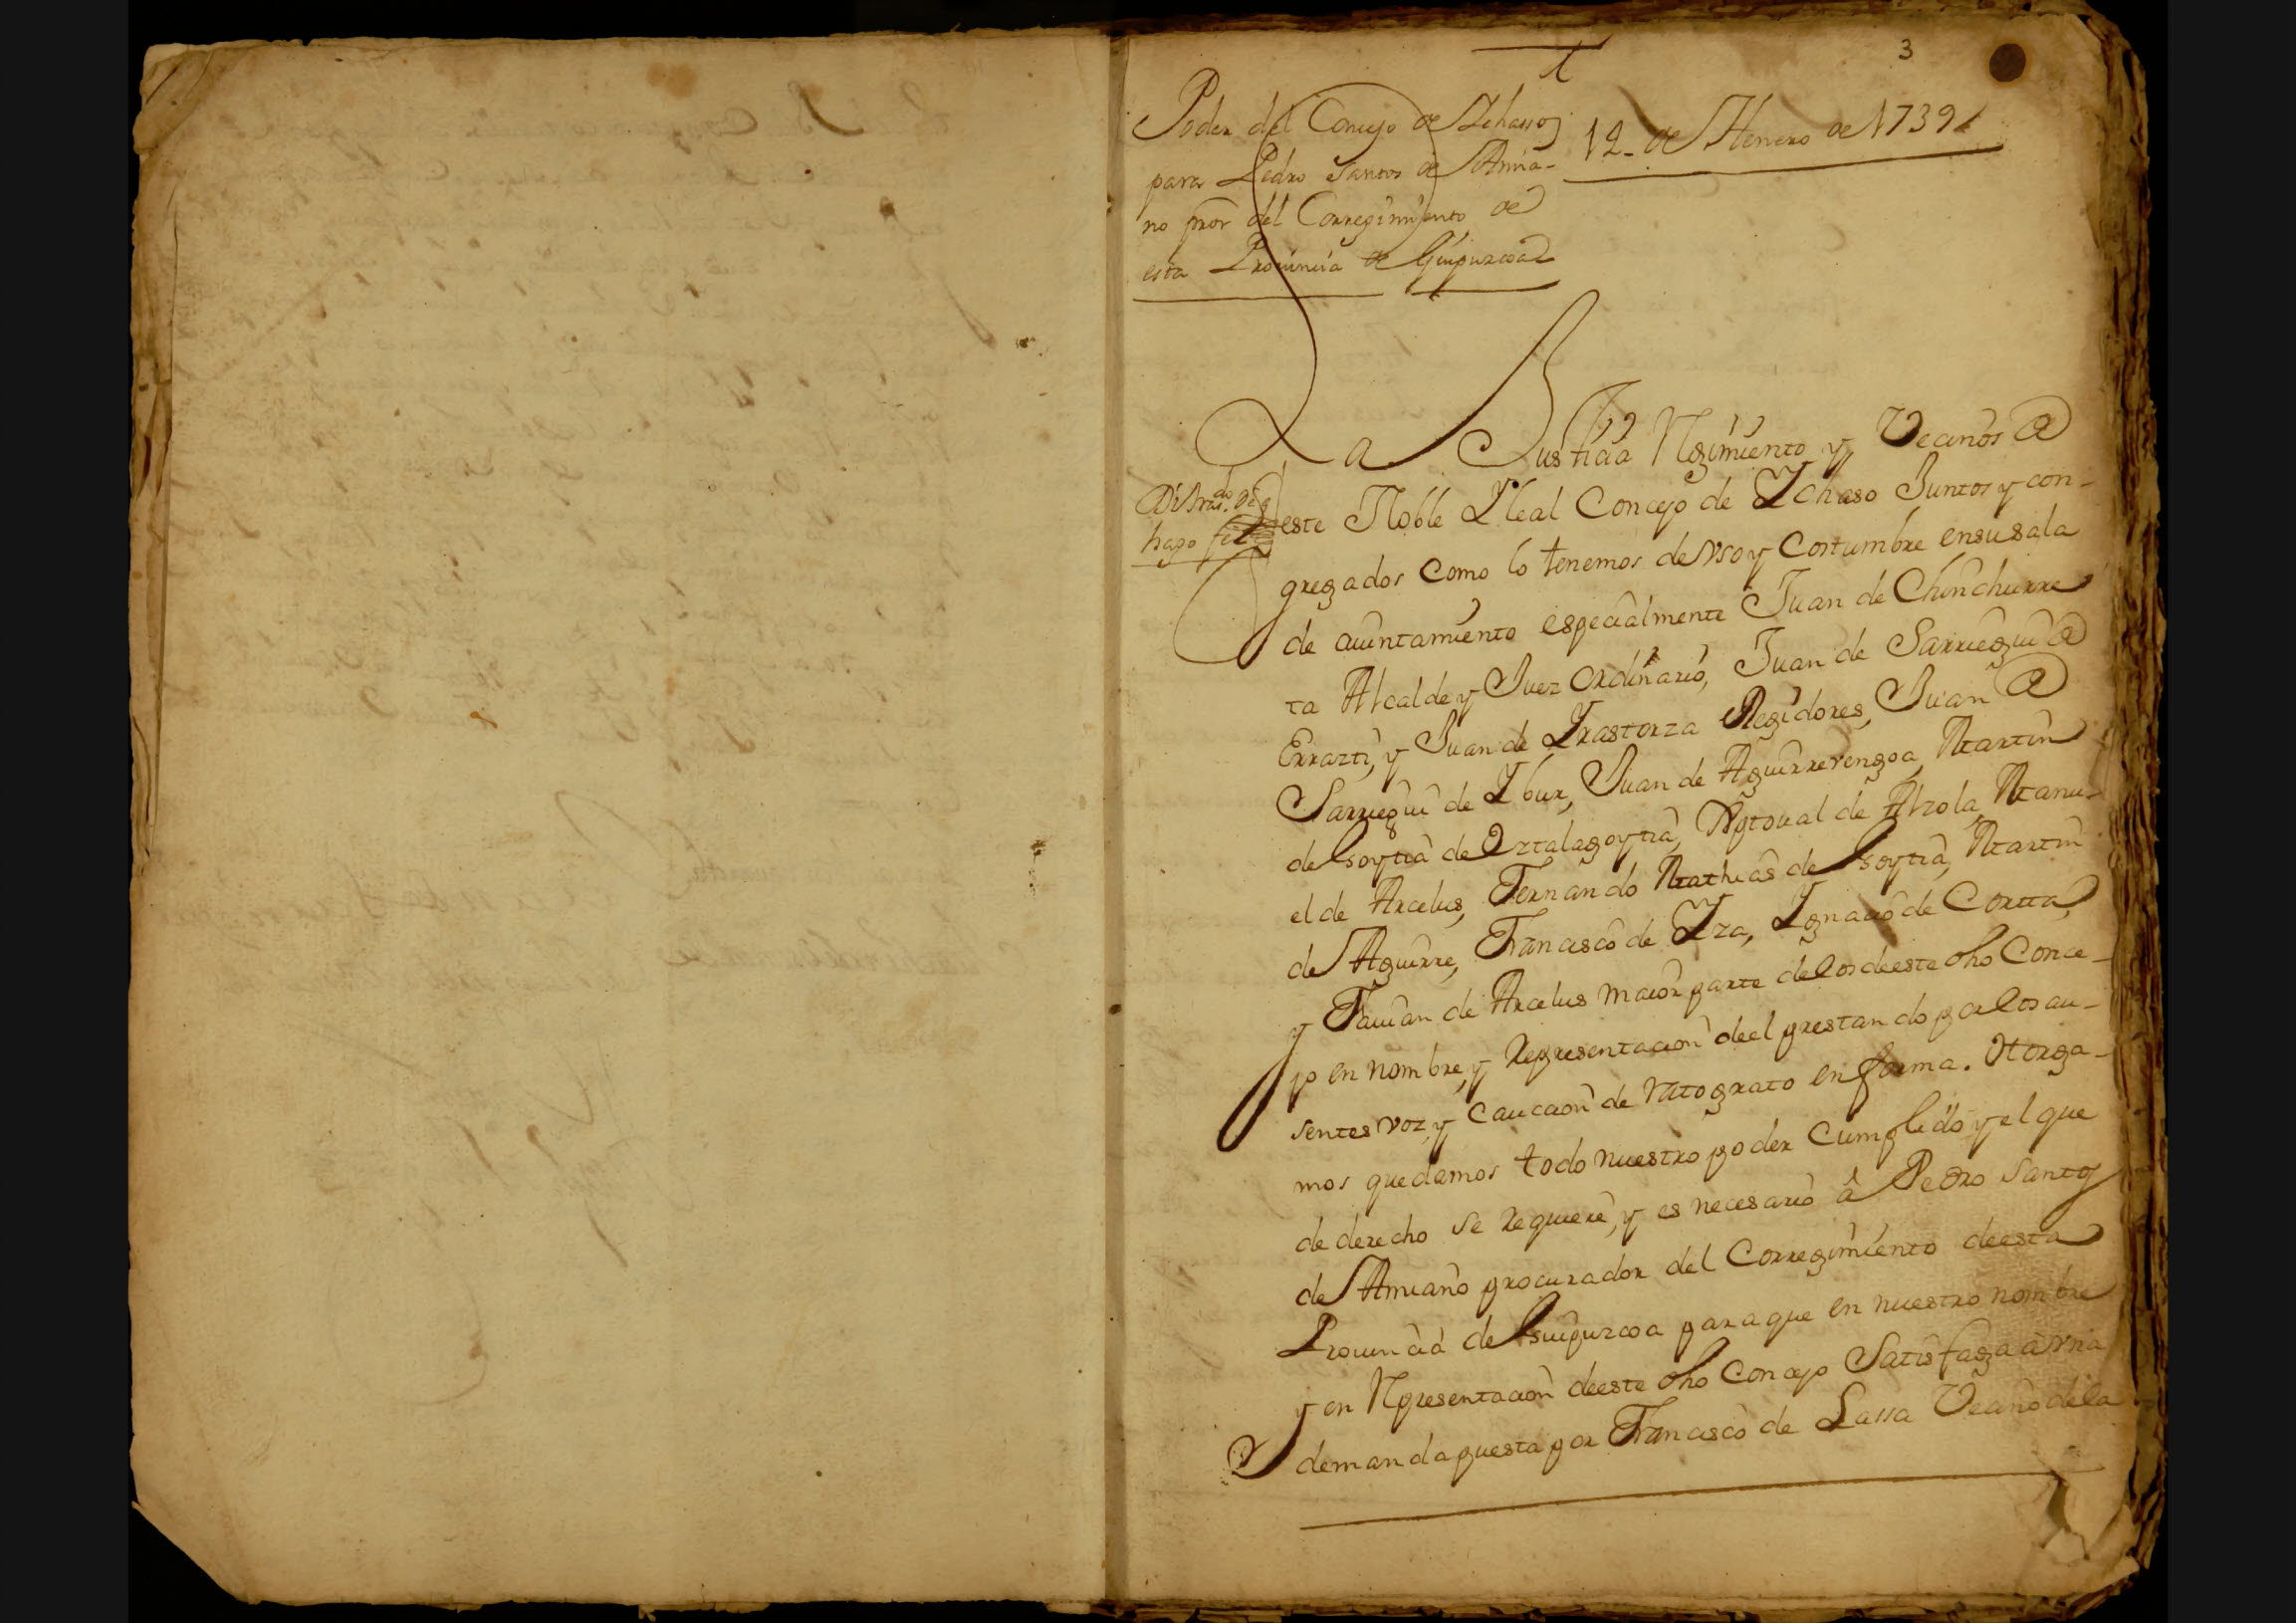 3
1
Poder del Concejo de Ychasso
para Pedro Santos de Amia-
no pror del Corregimiento de
esta Prouincia de Guipuzcoa
12. de Henero de 1739
La Justicia Regimiento y Vecinos de
hago fee
este Noble Y leal Concejo de Ychaso Juntos y con-
gregados como lo tenemos de vso y Costumbre ensusala
de auintamiento especialmente Juan de Chinchurre
ta Alcalde y Juez ordinario, Juan de Sarriegui de
Errazti, y Juan de Yrastorza Regidores, Juan de
Sarriegui de Ybur, Juan de Aguirrerengoa, Martin
de Goytia de Oztalagoytia, de Alzola, Manu-
el de Arcelus, Fernando Mathias de Goytia, Martin
de Aguirre, Francisco de Yza, Ygnacio de Cortta,
y Fauian de Arcelus maior parte de los deeste dho Conce-
jo en nombre, y Representacion deel prestando por los au-
sentes voz, y Caucion de ratograto en forma. Otorga-
mos quedamos todo nuestro poder Cumplido y el que
de derecho se requiere, y es necesario â Pedro Santos
de Amiano procurador del Corregimiento deesta
Prouincia de Guipuzcoa paraque en nuestro nombre
y en Representacion deeste dho Concejo Satisfaga â vna
demanda puesta por Francisco de Lassa Vecino dela